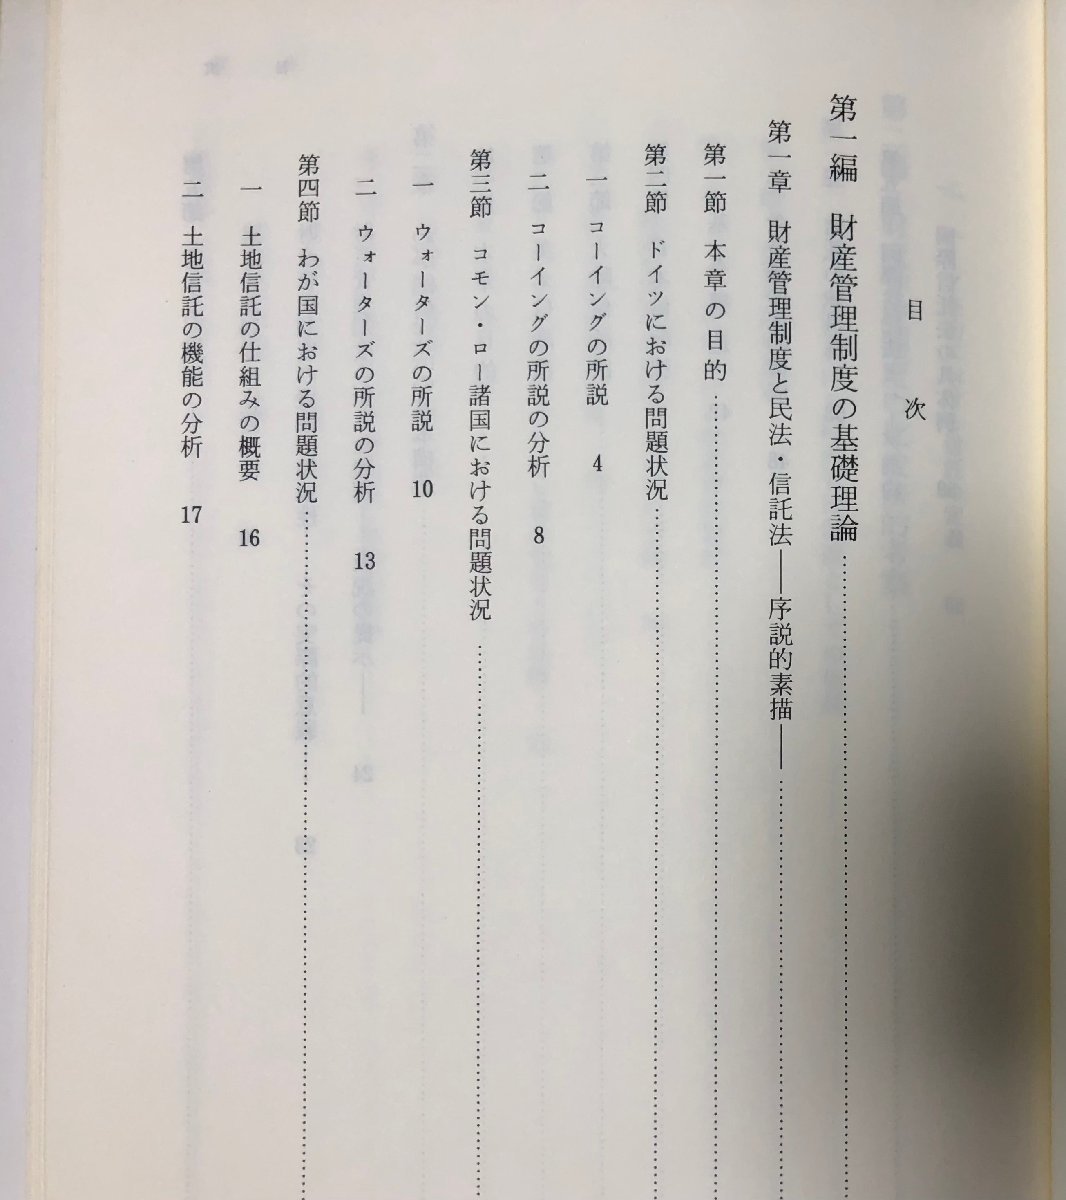 目次
第一編　財産管理制度の基礎理論……
第一章　財産管理制度と民法・信託法――序説的素描――……
第一節　本章の目的……
第二節　ドイツにおける問題状況……
一　コーイングの所説　4
二　コーイングの所説の分析　8
第三節　コモン・ロー諸国における問題状況……
一　ウォーターズの所説　10
二　ウォーターズの所説の分析　13
第四節　わが国における問題状況……
一　土地信託の仕組みの概要　16
二　土地信託の機能の分析　17